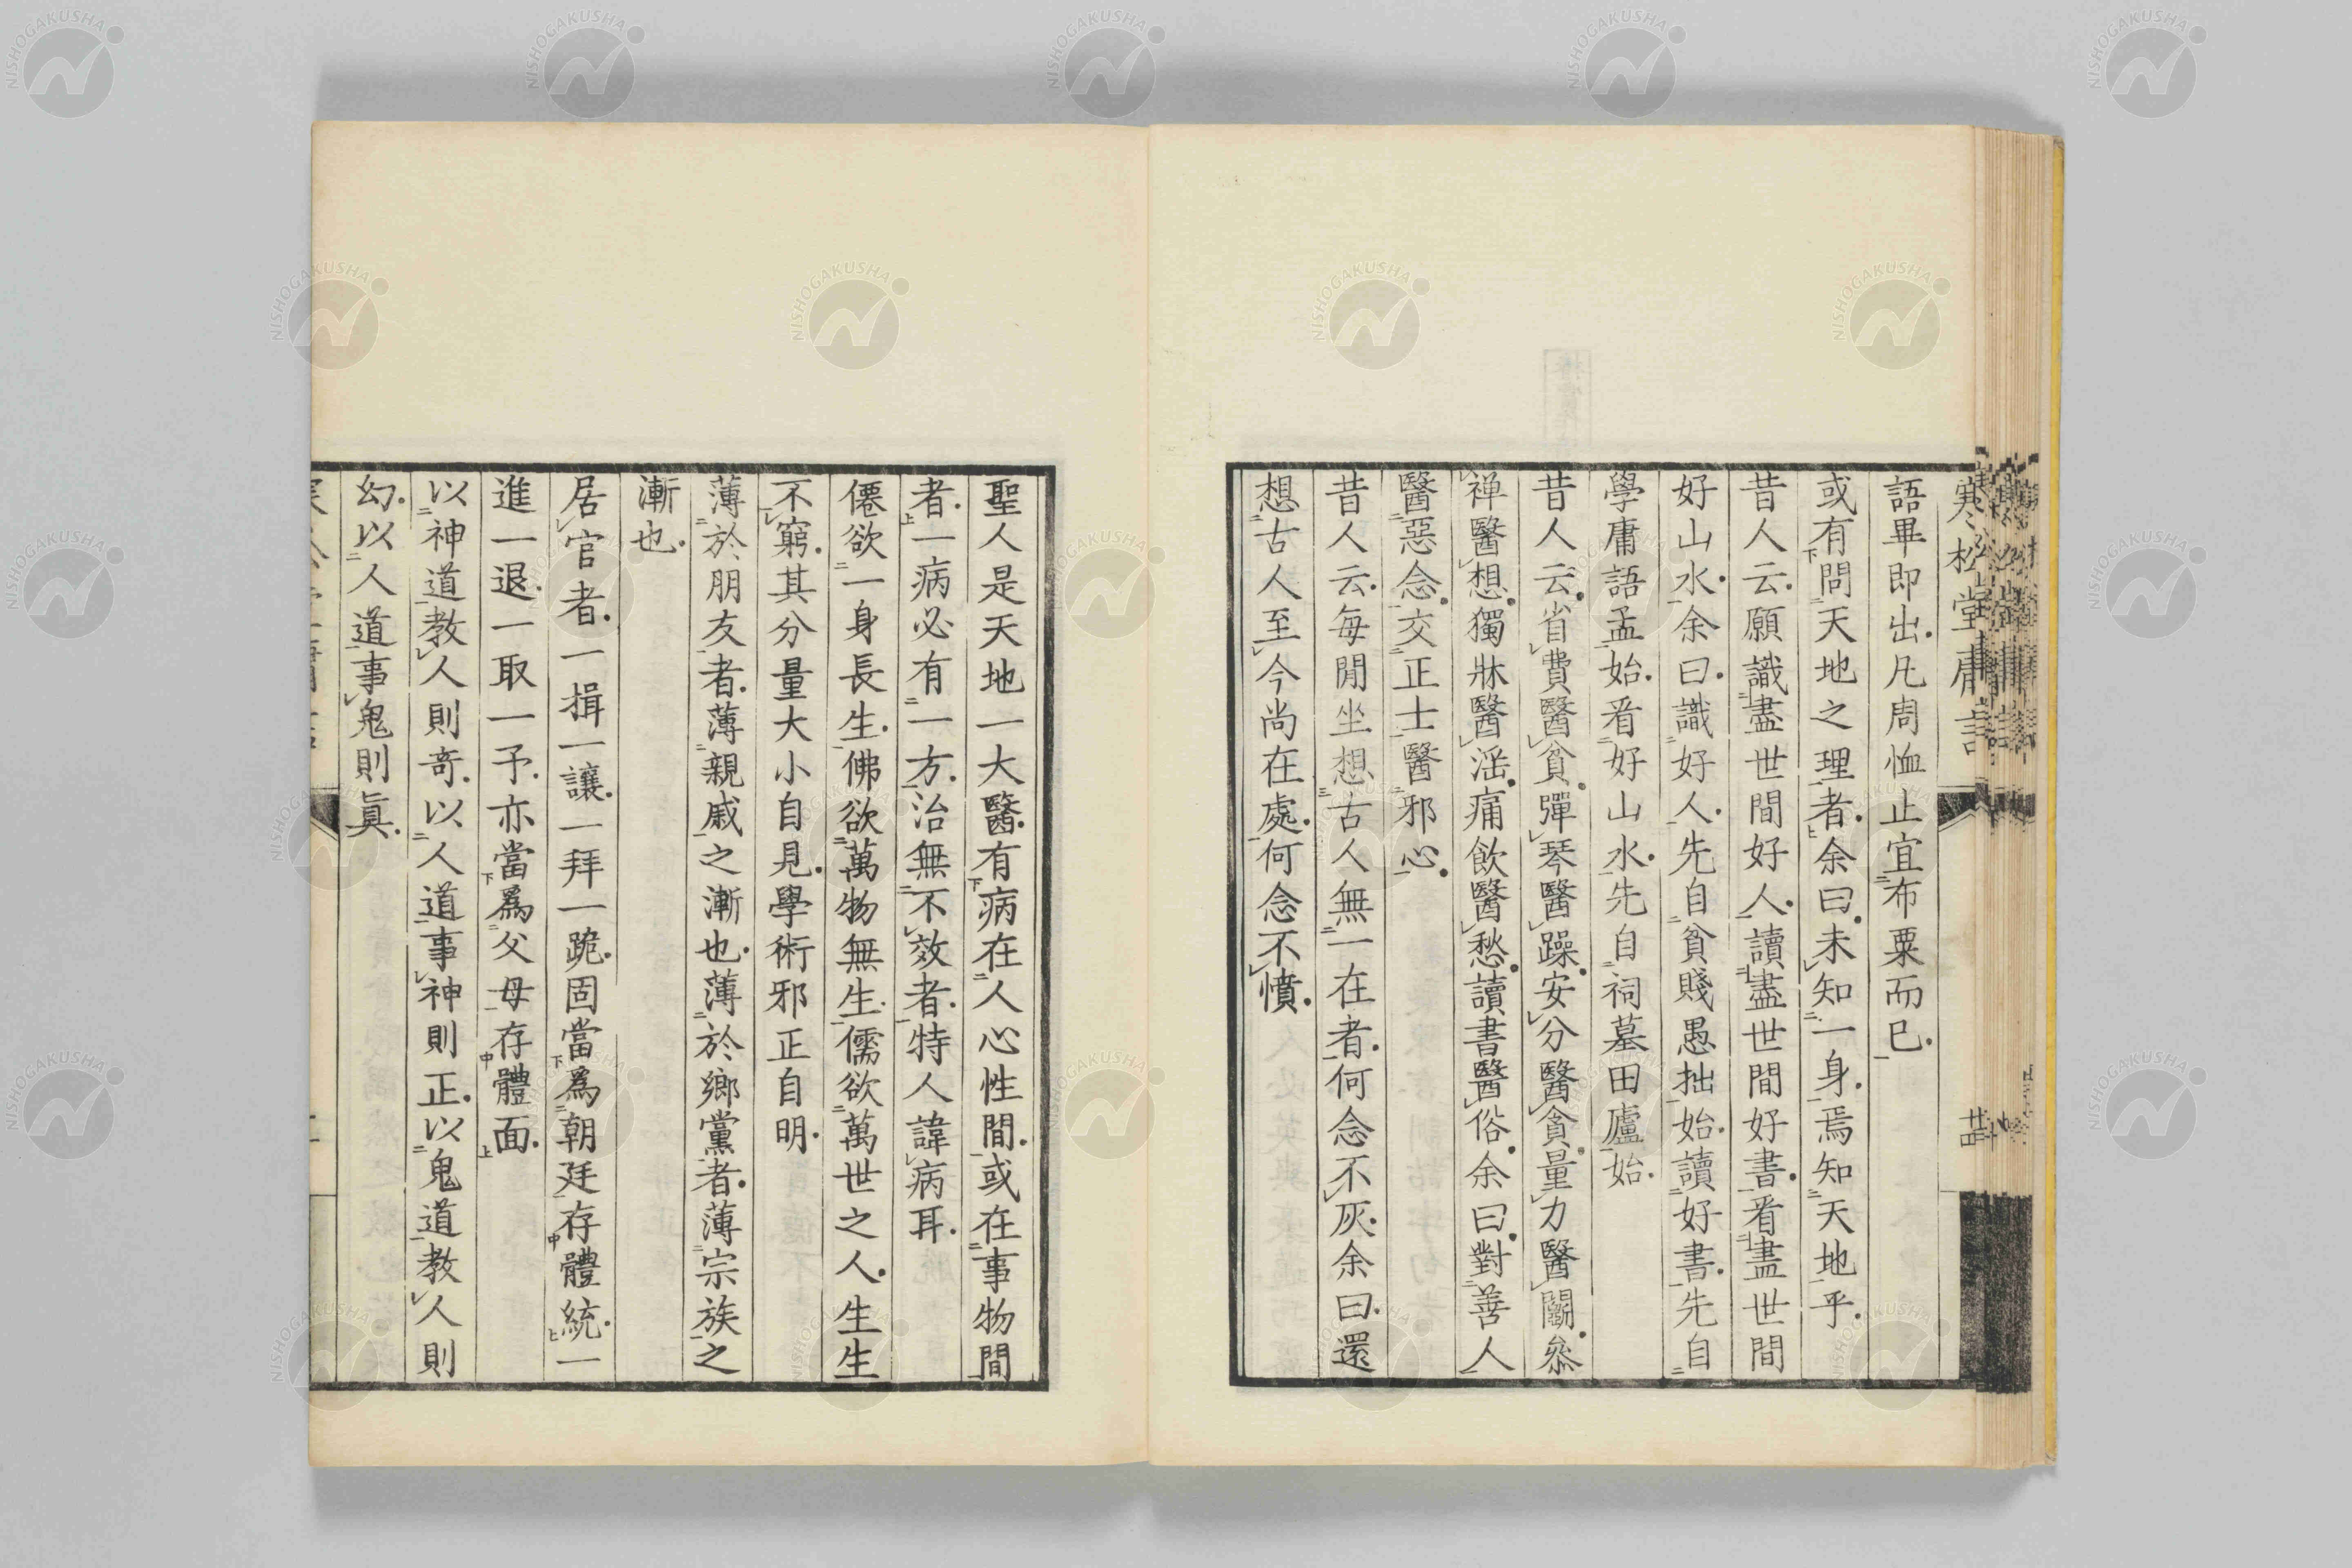 寒松堂庸言
廿四
語畢即出凡周恤止宜布粟而已
或有問天地之理者余曰未知一身焉知天地乎
昔人云願識盡世間好人讀盡世間好書看盡世間
好山水余曰識好人先自貧賤愚拙始讀好書先自
學庸語孟始看好山水先自祠墓田廬始
昔人云省費醫貧彈琴醫躁安分醫貪量力醫鬬叅
禅醫想獨牀醫淫痛飲醫愁讀書醫俗余曰對善人
醫惡念交正士醫邪心
昔人云每閒坐想古人無一在者何念不灰余曰還
想古人至今尚在處何念不憤
聖人是天地一大醫有病在人心性間或在事物間
者一病必有一方治無不效者特人諱病耳
僊欲一身長生佛欲萬物無生儒欲萬世之人生生
不窮其分量大小自見學術邪正自明
薄於朋友者薄親戚之漸也薄於鄉黨者薄宗族之
漸也
居官者一揖一讓一拜一跪固當爲朝廷存體統一
進一退一取一予亦當爲父母存體面
以神道教人則奇以人道事神則正以鬼道教人則
幻以人道事鬼則眞
NISHOGAKUSHA